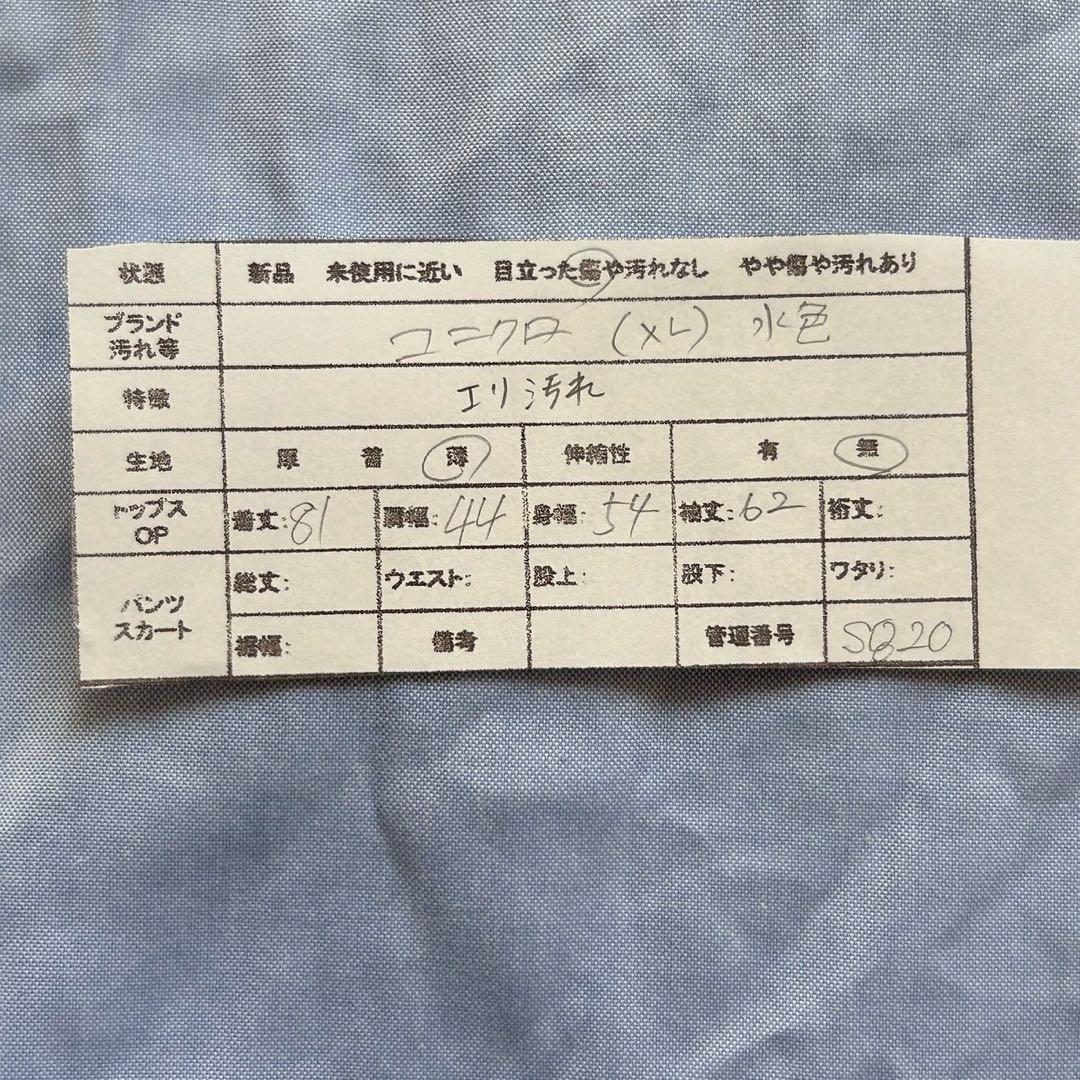 状態 新品 未使用に近い 目立った傷や汚れなし やや傷や汚れあり
ブランド 汚れ等 ユニクロ (XL) 水色
特徴 エリ汚れ
生地 厚 普 薄 伸縮性 有 無
トップス OP 着丈:81 肩幅:44 身幅:54 袖丈:62 裄丈:
パンツ スカート 総丈: ウエスト: 股上: 股下: ワタリ:
裾幅: 備考 管理番号 SQ20